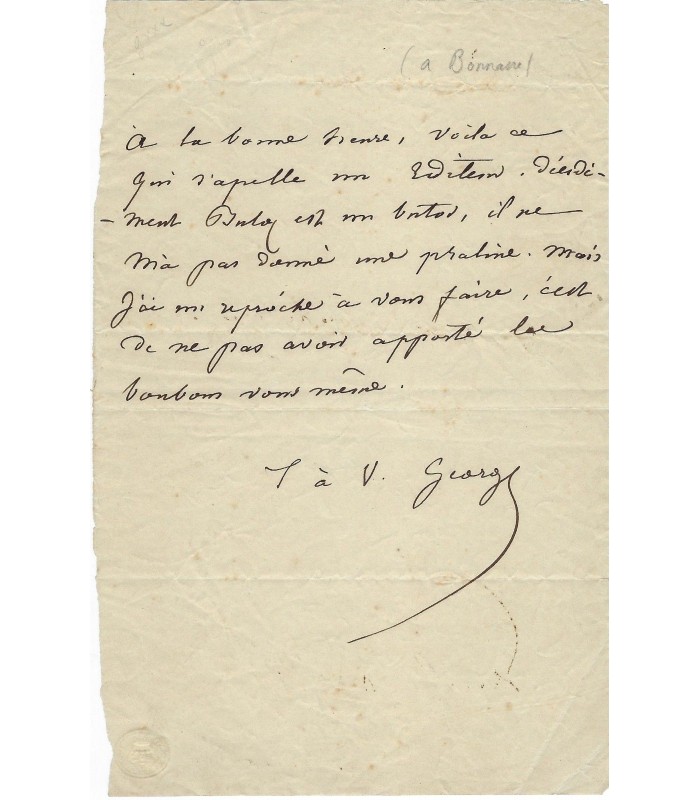 (a Bonnaire)
À la bonne heure, voila ce
qui s'apelle un Editeur. Décidé-
-ment Buloz est un butor, il ne
m'a pas donné une praline. Mais
j'ai un reproche à vous faire, c'est
de ne pas avoir apporté les
bonbons vous même.
T à V. George